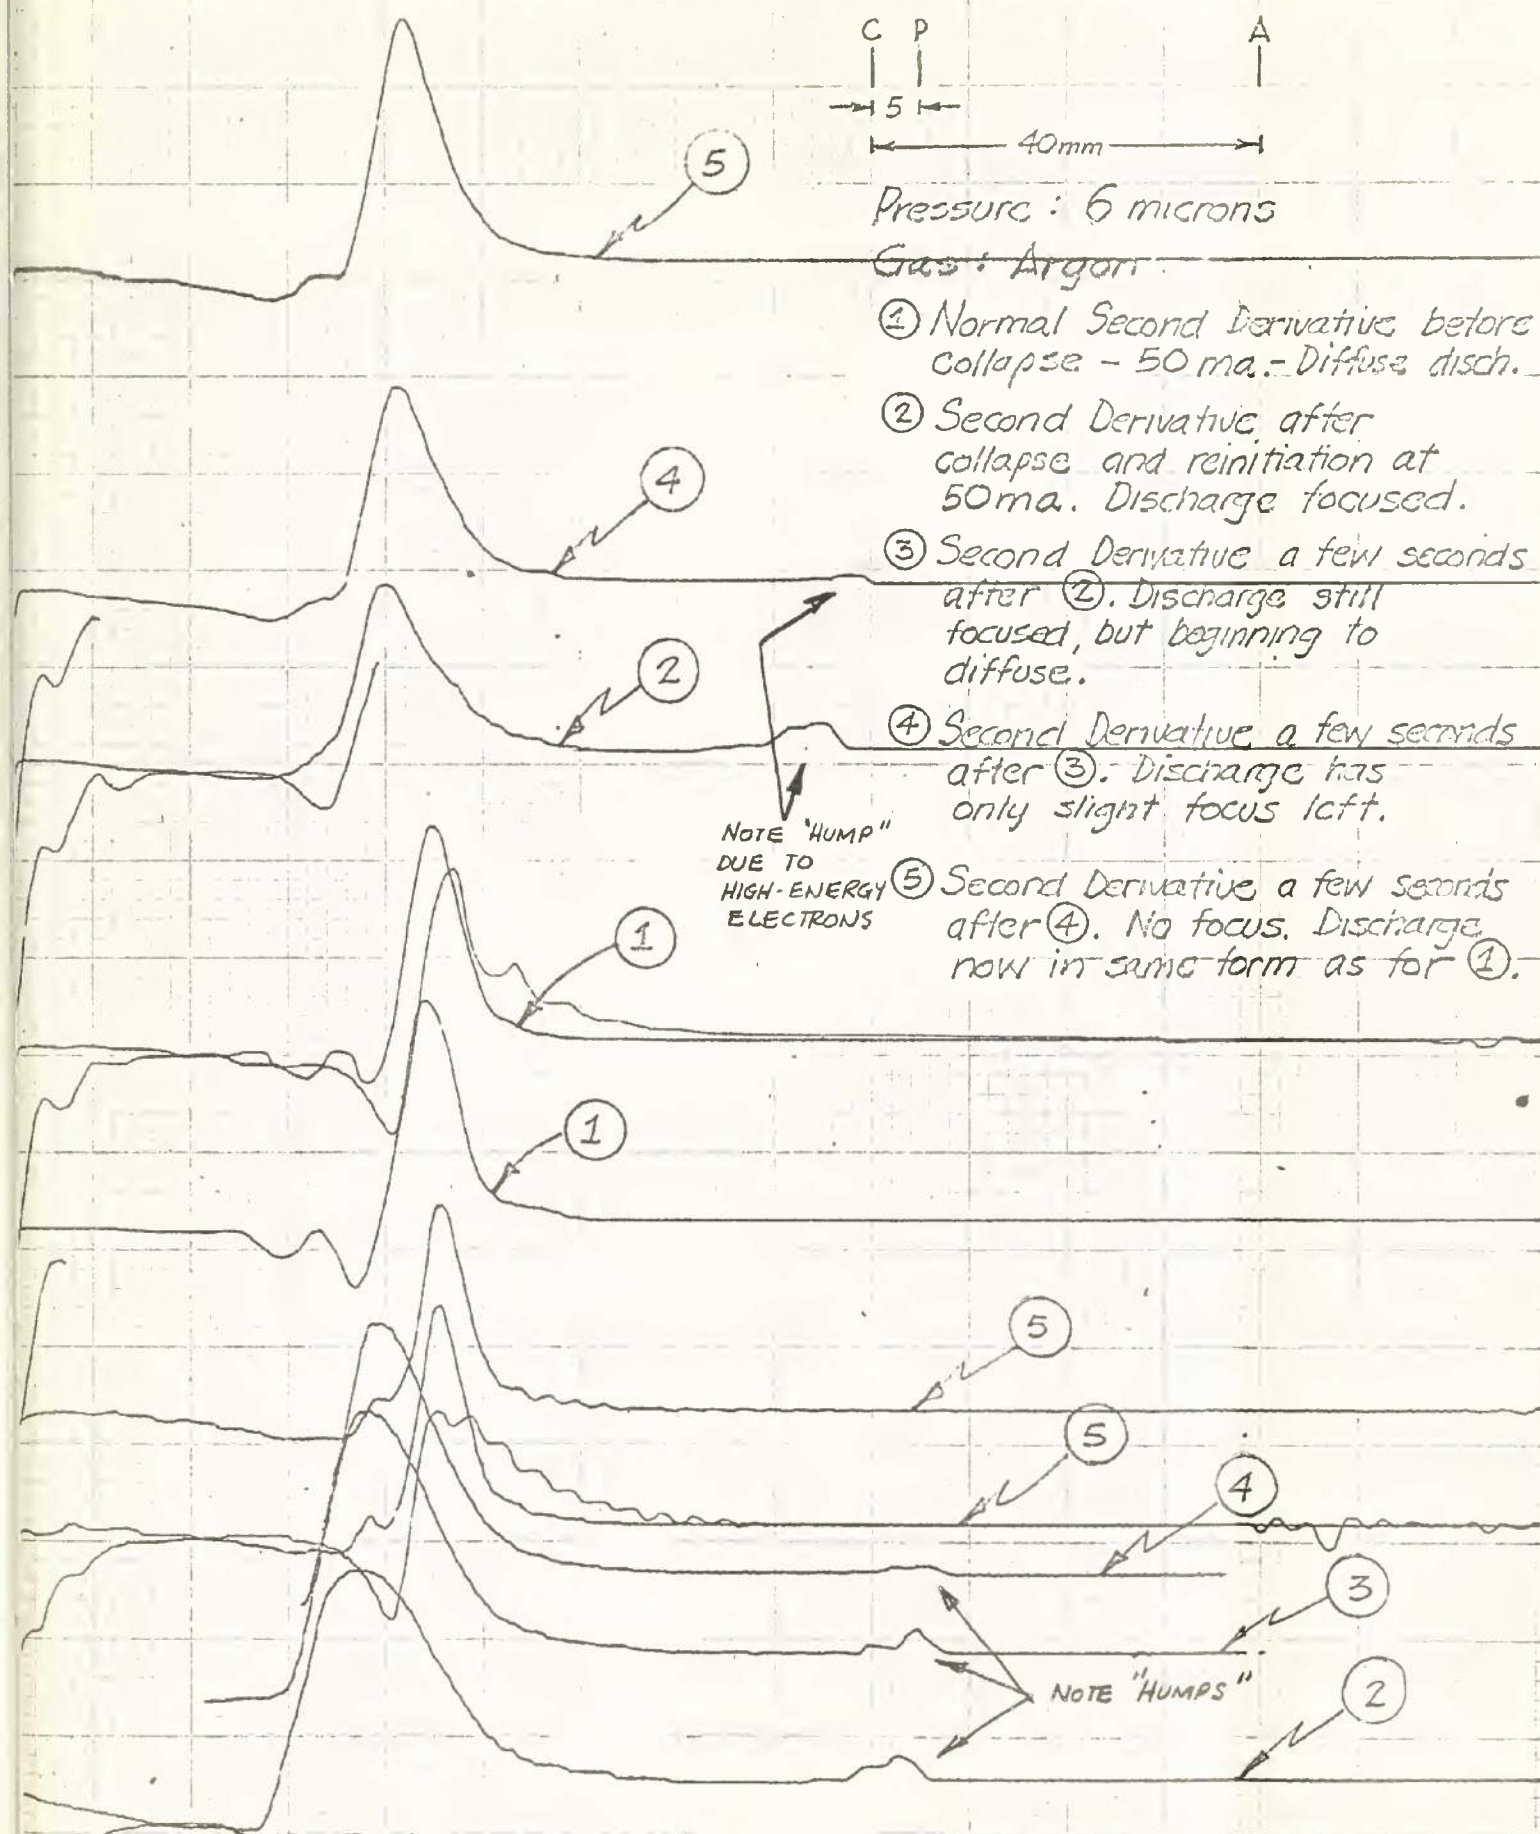 C P A
5
40mm
Pressure : 6 microns
Gas : Argon
① Normal Second Derivative before
collapse - 50 ma. - Diffuse disch.
② Second Derivative after
collapse and reinitiation at
50ma. Discharge focused.
③ Second Derivative a few seconds
after ②. Discharge still
focused, but beginning to
diffuse.
④ Second Derivative a few seconds
after ③. Discharge has
only slight focus left.
⑤ Second Derivative a few seconds
after ④. No focus. Discharge
now in same form as for ①.
5
4
2
NOTE "HUMP"
DUE TO
HIGH-ENERGY
ELECTRONS
1
1
5
5
4
3
NOTE "HUMPS"
2